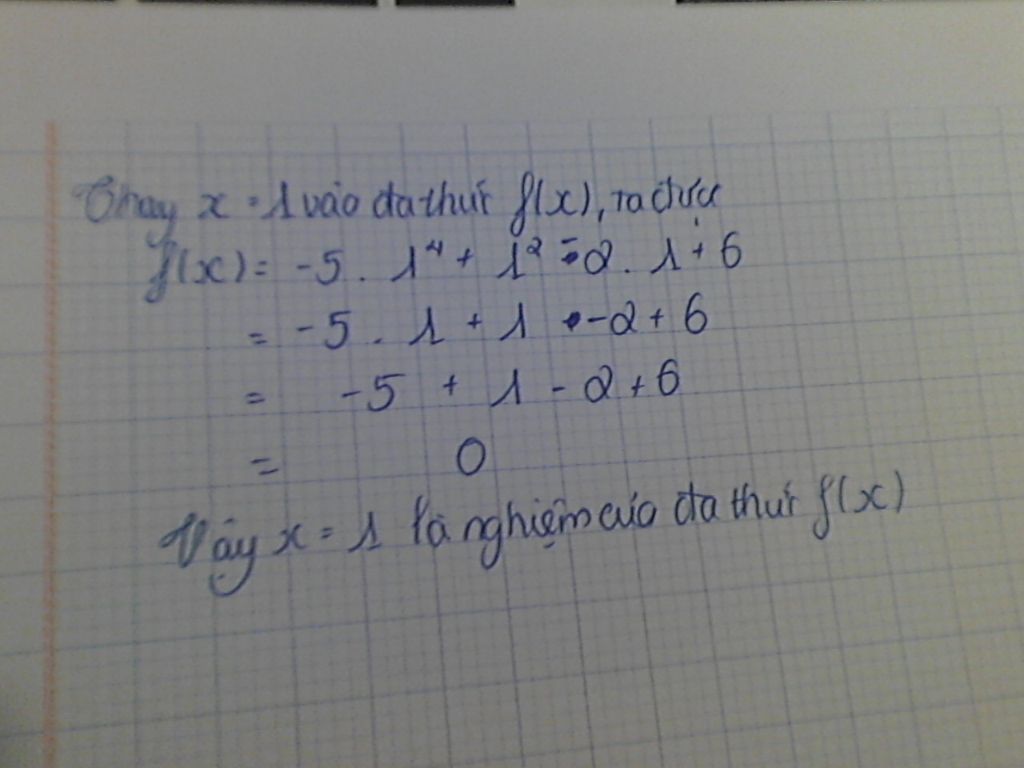 Thay x = 1 vào đa thức f(x), ta được
f(x) = -5 . 1⁴ + 1² - 2 . 1 + 6
= -5 . 1 + 1 - 2 + 6
= -5 + 1 - 2 + 6
= 0
Vậy x = 1 là nghiệm của đa thức f(x)